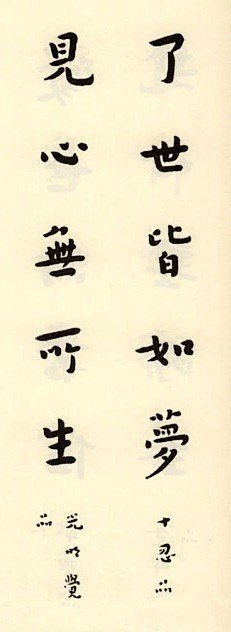 了世皆如夢
十忍品
見心無所生
光明覺
品